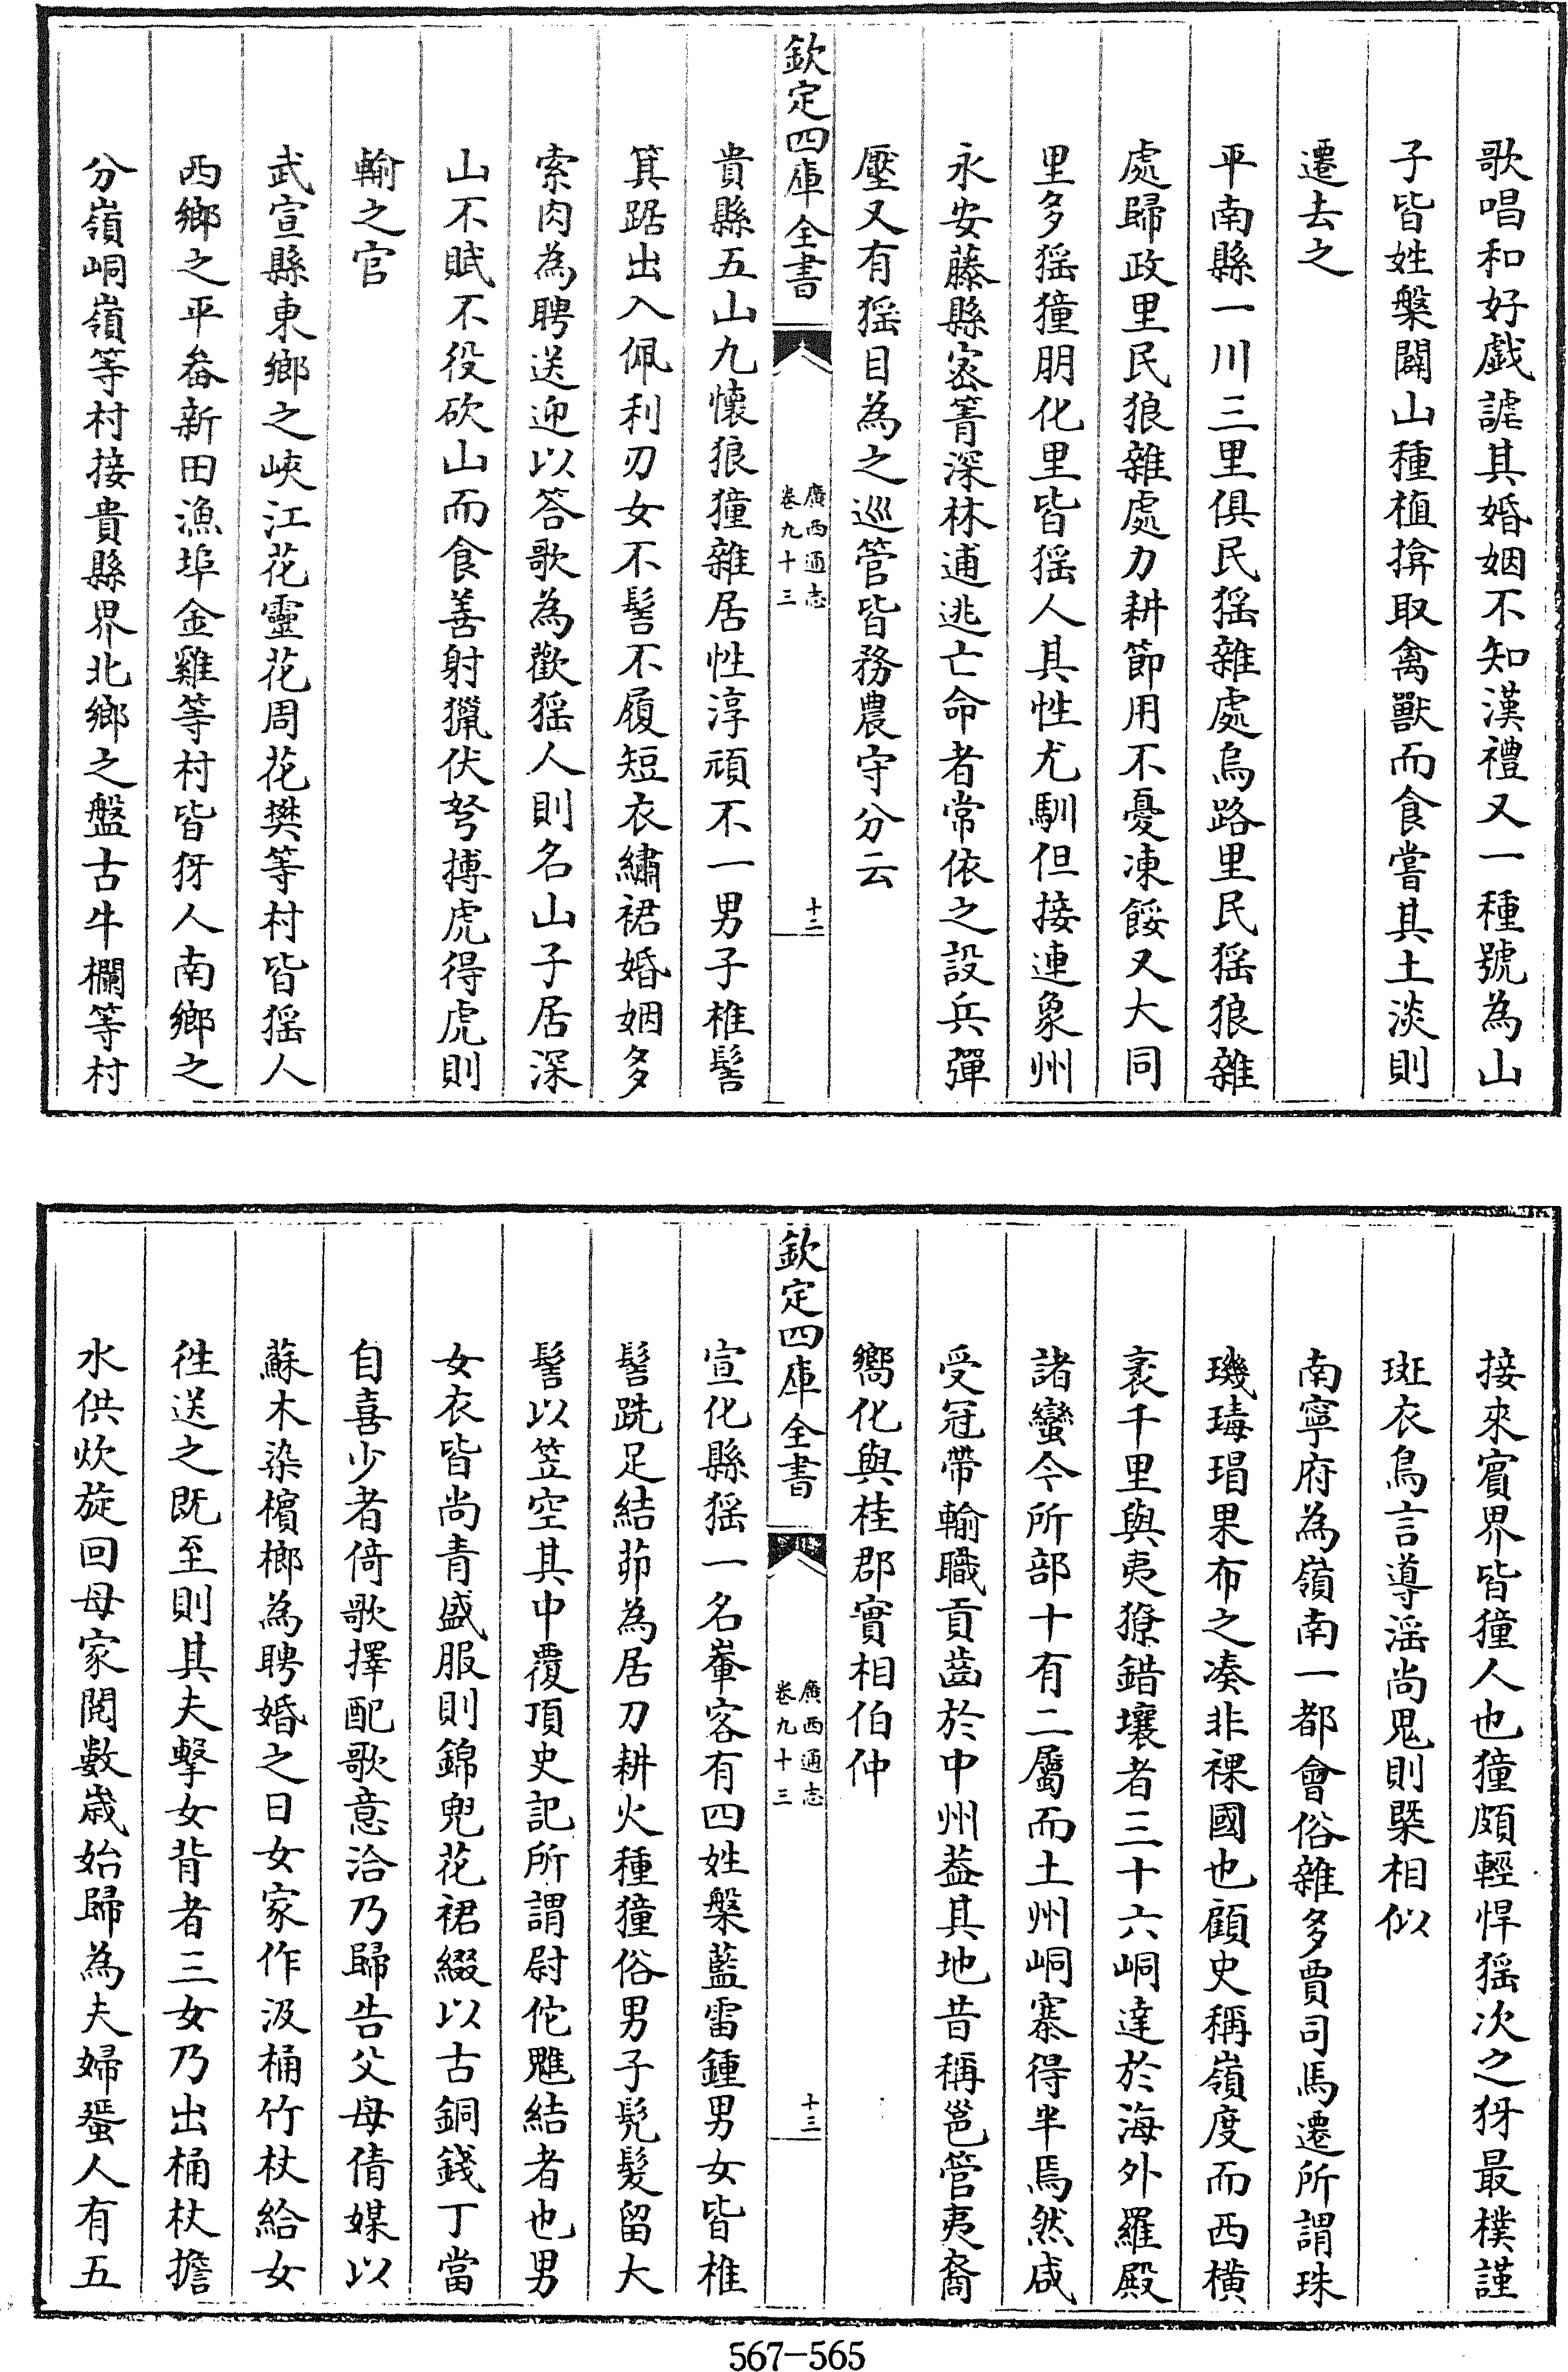 歌唱和好戯謔其婚姻不知漢禮又一種號為山
子皆姓槃闢山種植揜取禽獸而食嘗其土淡則
遷去之
平南縣一川三里俱民猺雜處烏路里民猺狼雜
處歸政里民狼雜處力耕節用不憂凍餒又大同
里多猺獞朋化里皆猺人其性尤馴但接連象州
永安藤縣密箐深林逋逃亡命者常依之設兵彈
壓又有猺目為之巡管皆務農守分云
欽定四庫全書
廣西通志
卷九十三
十二
貴縣五山九懷狼獞雜居性淳頑不一男子椎髻
箕踞出入佩利刃女不髻不履短衣繡裙婚姻多
索肉為聘送迎以答歌為歡猺人則名山子居深
山不賦不役砍山而食善射獵伏弩搏虎得虎則
輸之官
武宣縣東鄉之峽江花靈花周花樊等村皆猺人
西鄉之平畚新田漁埠金雞等村皆犽人南鄉之
分嶺峒嶺等村接貴縣界北鄉之盤古牛欄等村
接來賓界皆獞人也獞頗輕悍猺次之犽最樸謹
斑衣鳥言導滛尚鬼則槩相似
南寧府為嶺南一都會俗雜多賈司馬遷所謂珠
璣瑇瑁果布之湊非裸國也顧史稱嶺度而西橫
袤千里與夷獠錯壤者三十六峒達於海外羅殿
諸蠻今所部十有二屬而土州峒寨得半焉然咸
受冠帶輸職貢齒於中州葢其地昔稱邕管夷裔
嚮化與桂郡實相伯仲
欽定四庫全書
廣西通志
卷九十三
十三
宣化縣猺一名輋客有四姓槃藍雷鍾男女皆椎
髻跣足結茆為居刀耕火種獞俗男子髠髮留大
髻以笠空其中覆頂史記所謂尉佗魋結者也男
女衣皆尚青盛服則錦兜花裙綴以古銅錢丁當
自喜少者倚歌擇配歌意洽乃歸告父母倩媒以
蘇木染檳榔為聘婚之日女家作汲桶竹杖給女
徃送之既至則其夫擊女背者三女乃出桶杖擔
水供炊旋回母家閱數歲始歸為夫婦蜑人有五
567-565